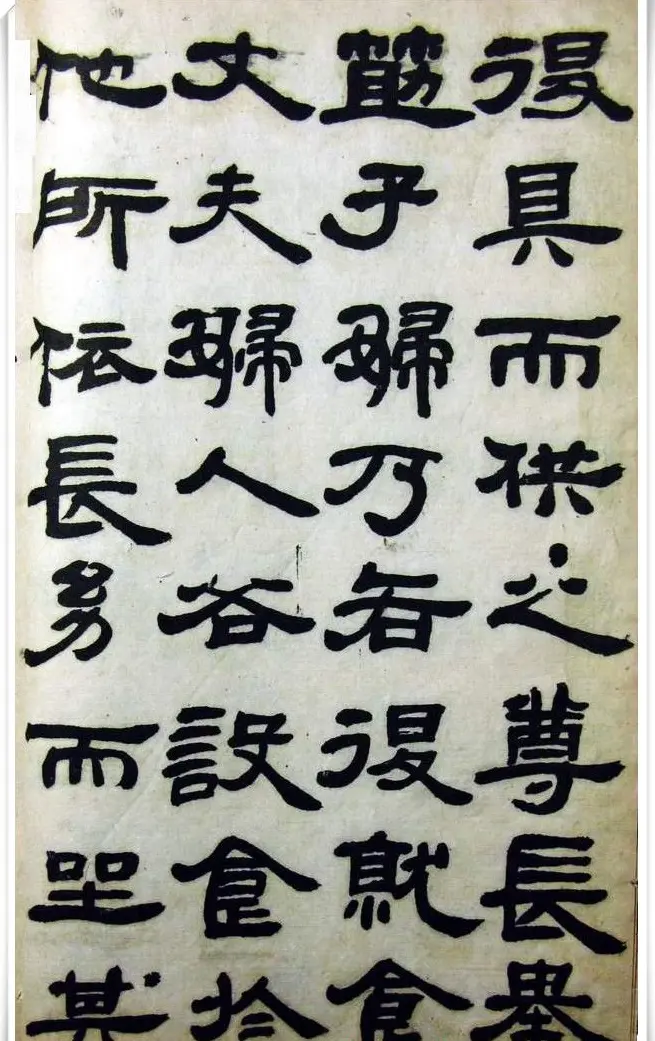 退具而供之尊長舉
筯子婦乃各退就食
丈夫婦人各設食於
他所依長幼而坐其